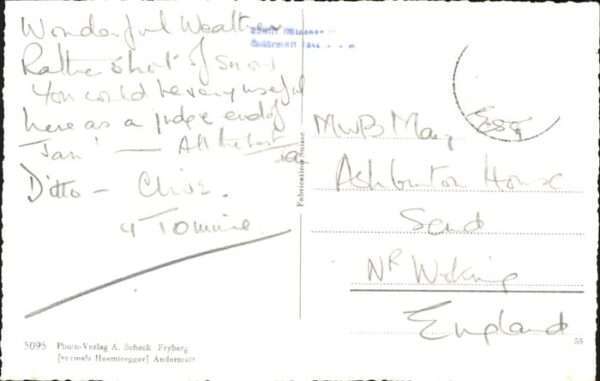 Wonderful Weather
Rather short of Snow
You could be very useful
here as a judge end of
Jan! — All the best
Ditto - Clive.
& Tommie
Fabrication Suisse
MWB May, Esq
Ashburton House
Send
Nr Woking
England
5095 Photo-Verlag A. Scheck Fryberg
[vormals Haemisegger] Andermatt
55